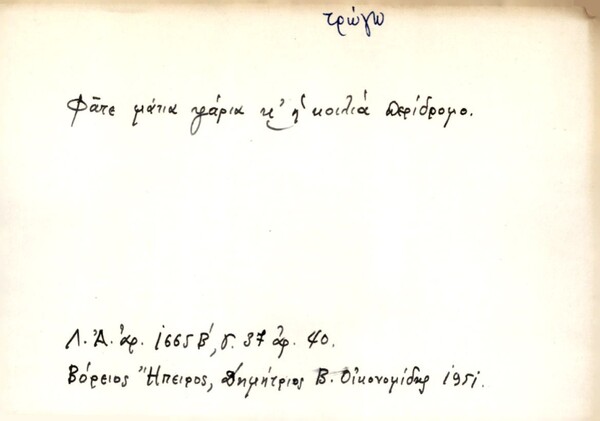 τρώγω
Φᾶτε μάτια ψάρια κ' ἡ κοιλιά περίδρομο.
Λ.Ἀ. ἀρ. 1665 Β', σ. 37 ἀρ. 40.
Βόρειος Ἤπειρος, Δημήτριος Β. Οἰκονομίδης 1951.